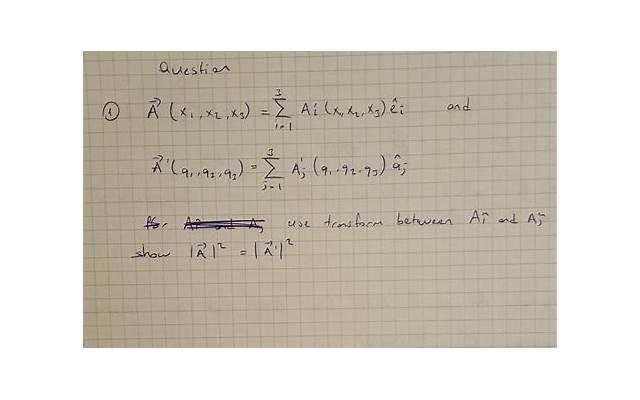 Question
① A⃗ (x₁, x₂, x₃) = ∑³ᵢ₌₁ Aᵢ (x₁, x₂, x₃) êᵢ and
A⃗' (q₁, q₂, q₃) = ∑³ⱼ₌₁ A'ⱼ (q₁, q₂, q₃) q̂ⱼ
use transform between Aᵢ and Aⱼ
show |A⃗|² = |A⃗'|²